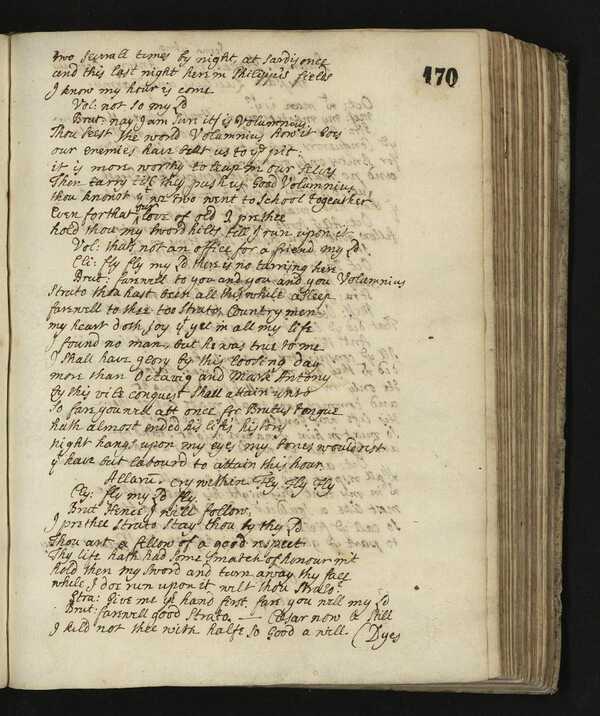 170
two severall times by night, at Sardis once
and this last night here in Philippis fields
I know my hour is come
Vol: not so my Ld
Brut: nay I am sure it is Volumnius
Thou seest the world Volumnius how it goes
our enemies have beat us to ye pit:
it is more worthy to leap in our selves
Then tarry till they push us Good Volumnius
thou knowst yt we two went to School togeather
Even for that our love of old I prethee
hold thou my sword hilts till I run upon it
Vol: thats not an office for a friend my Ld
Cli: fly fly my Ld there is no tarrijng here
Brut: farewell to you and you and you Volumnius
Strato thou hast been all this while asleep
farewell to thee too Strato, Countrymen
my heart doth joy yt yet in all my life
I found no man, but he was true to me
I shall have glory by this loosing day
more than Octavig and Mark Antony
by this vile conquest shall attain unto
So fare you well att once for Brutus tongue
hath almost ended his lifes history
night hangs upon my eyes my bones would rest
yt have but labourd to attain this hour
Allaru. Cry within Fly, Fly, Fly
Cly: fly my Ld fly
Brut Hence I will follow,
I prethee Strato Stay thou by thy Ld
Thou art a fellow of a good respect
Thy life hath had some smatch of honour in't
hold then my sword and turn away thy face
while I doe run upon it wilt thou Strato:
Stra: Give me yr hand first, fare you well my Ld
Brut: farewell good Strato — Caesar now be still
I kild not thee with halfe so Good a will (Dyes